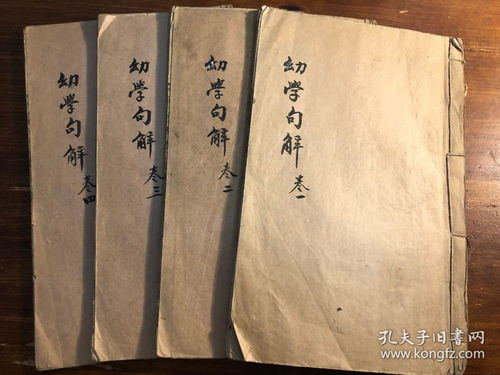 幼学句解 卷一
幼学句解 卷二
幼学句解 卷三
幼学句解 卷四
孔夫子旧书网
www.kongfz.com